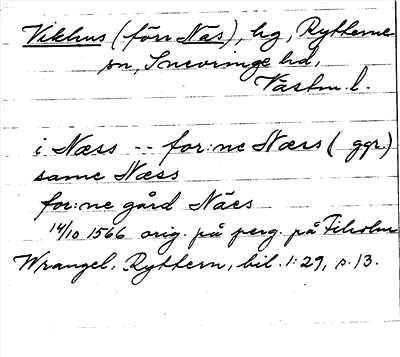 Vikhus (förr Näs), hg, Rytterne
sn, Snevringe hd,
Västm. l.
i Næss -- for:ne Næss ( ggr.)
same Næss
for:ne gård Näes
14/10 1566 orig. på perg. på Tiholm
Wrangel, Ryttern, bil. 1:29, s. 13.